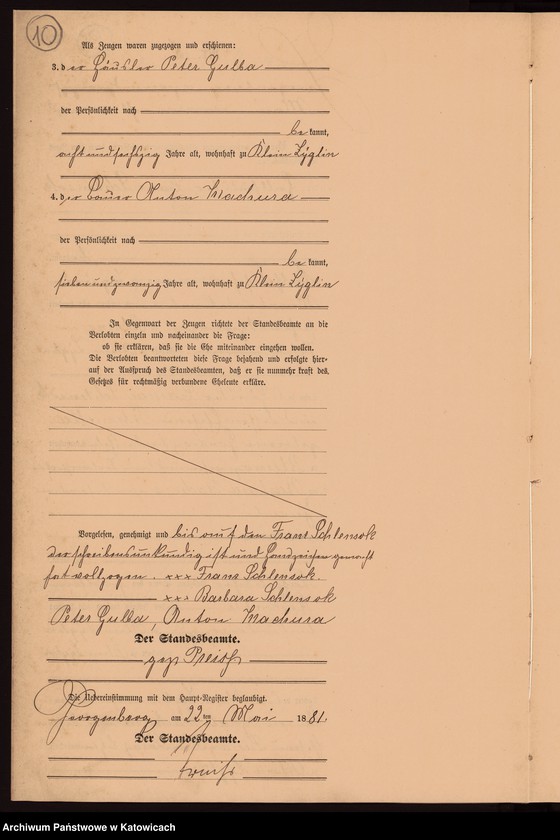 10
Als Zeugen waren zugezogen und erschienen:
3. der Häusler Peter Gulba
der Persönlichkeit nach
be kannt,
acht und sechszig Jahre alt, wohnhaft zu Klein Zyglin
4. der Bauer Anton Machura
der Persönlichkeit nach
be kannt,
sieben und zwanzig Jahre alt, wohnhaft zu Klein Zyglin
In Gegenwart der Zeugen richtete der Standesbeamte an die
Verlobten einzeln und nacheinander die Frage:
ob sie erklären, daß sie die Ehe miteinander eingehen wollen.
Die Verlobten beantworteten diese Frage bejahend und erfolgte hier-
auf der Ausspruch des Standesbeamten, daß er sie nunmehr kraft des
Gesetzes für rechtmäßig verbundene Eheleute erkläre.
Vorgelesen, genehmigt und bis auf den Franz Schlensok
der schreibensunkundig ist und Handzeichen gemacht
hat vollzogen. xxx Franz Schlensok.
xxx Barbara Schlensok
Peter Gulba, Anton Machura
Der Standesbeamte.
gez Preiß
Die Uebereinstimmung mit dem Haupt-Register beglaubigt.
Georgenberg am 22ten Mai 1881
Der Standesbeamte.
Preiß
Archiwum Państwowe w Katowicach